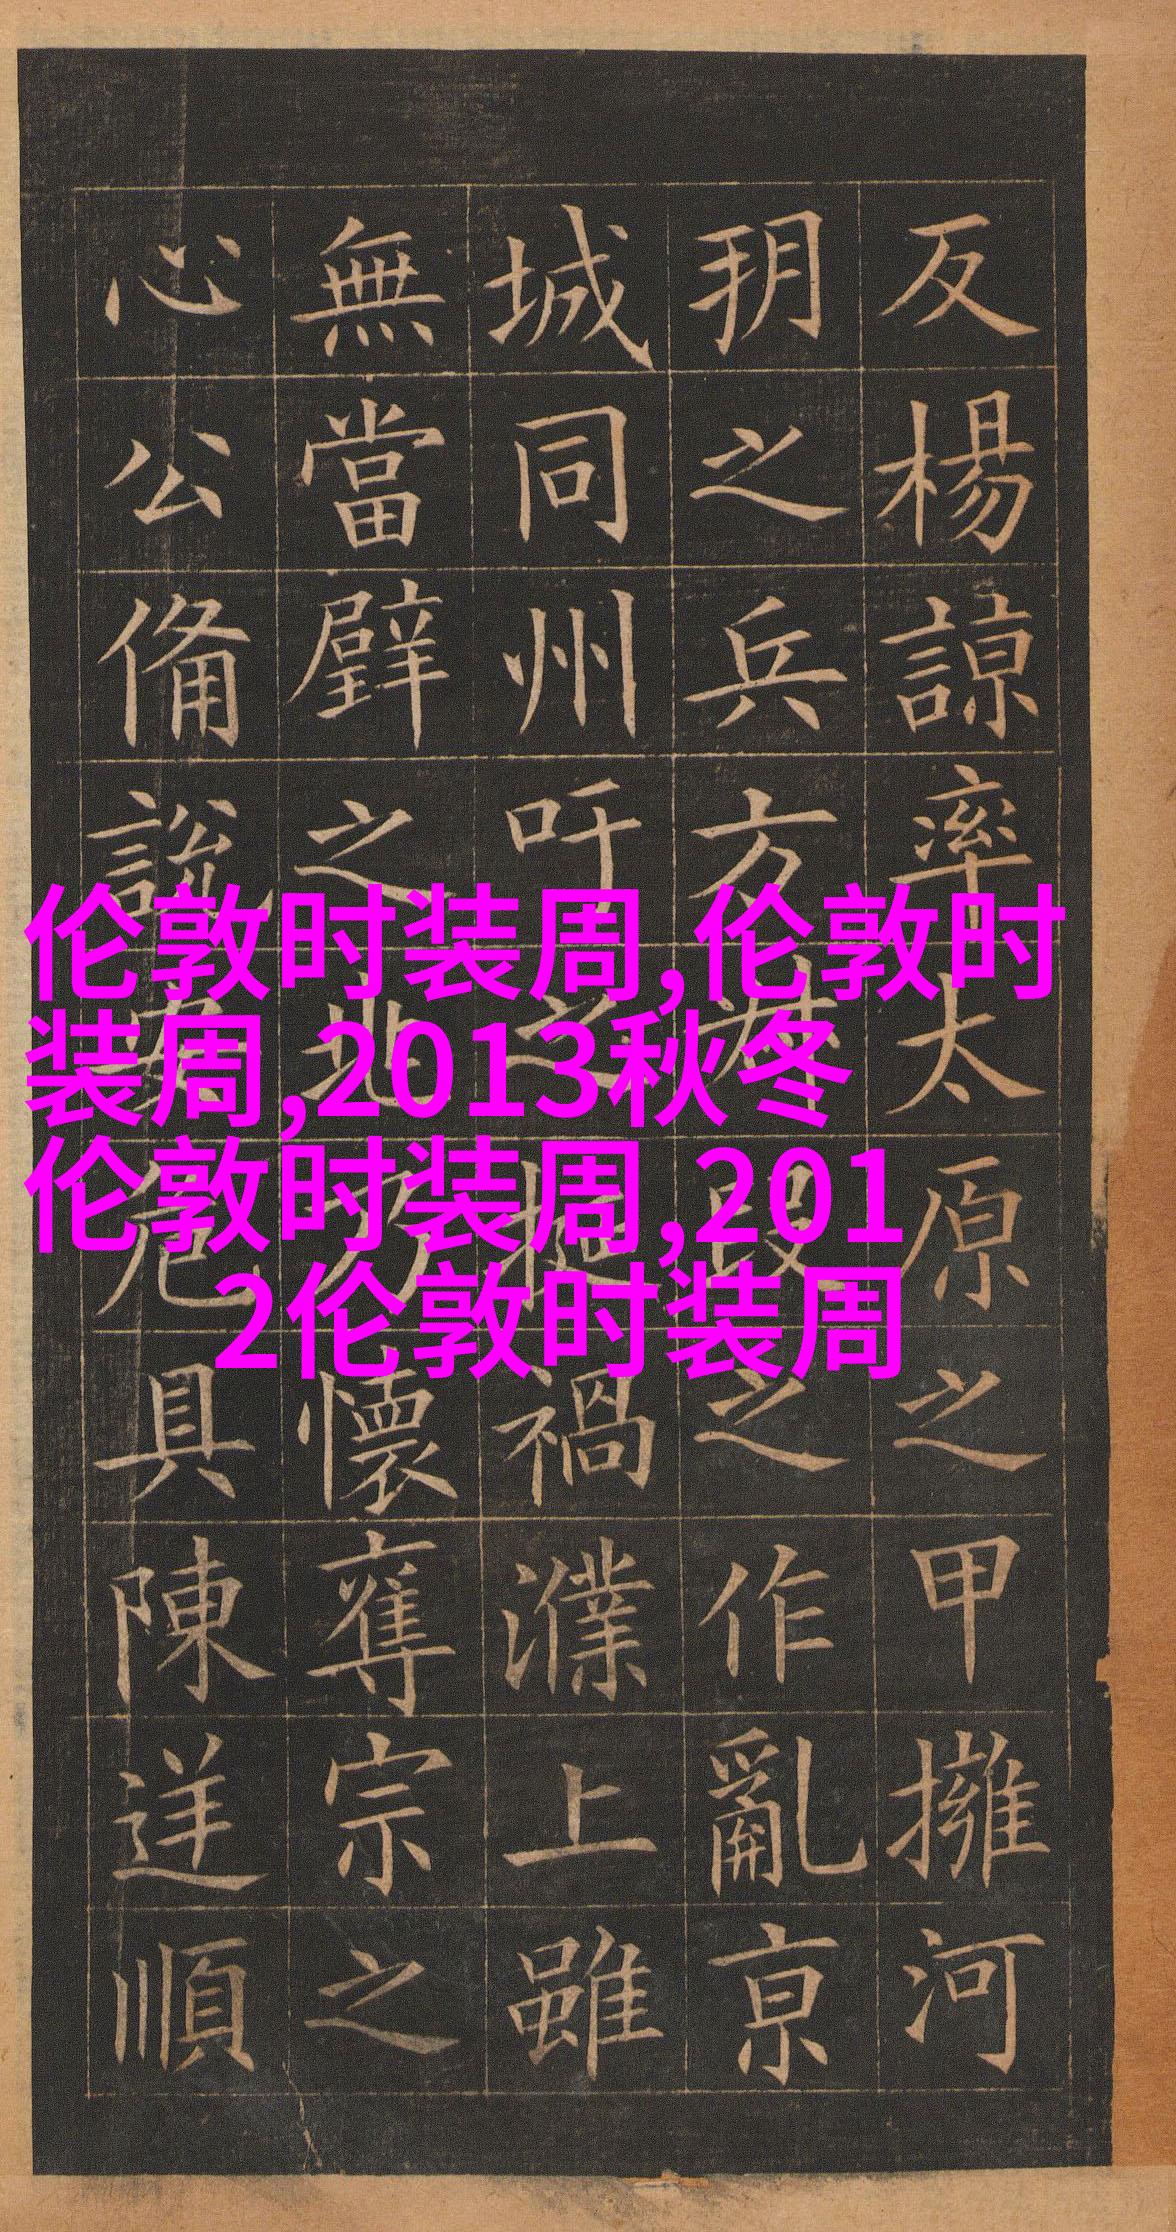 反楊諒率太原之甲擁河
朔之兵方叔段之作亂京
城同州吁之挺禍濮上雖
無當璧之兆乃懷奪宗之
心公備說安危具陳逆順
伦敦时装周,伦敦时
装周,2013秋冬
伦敦时装周,201
2伦敦时装周